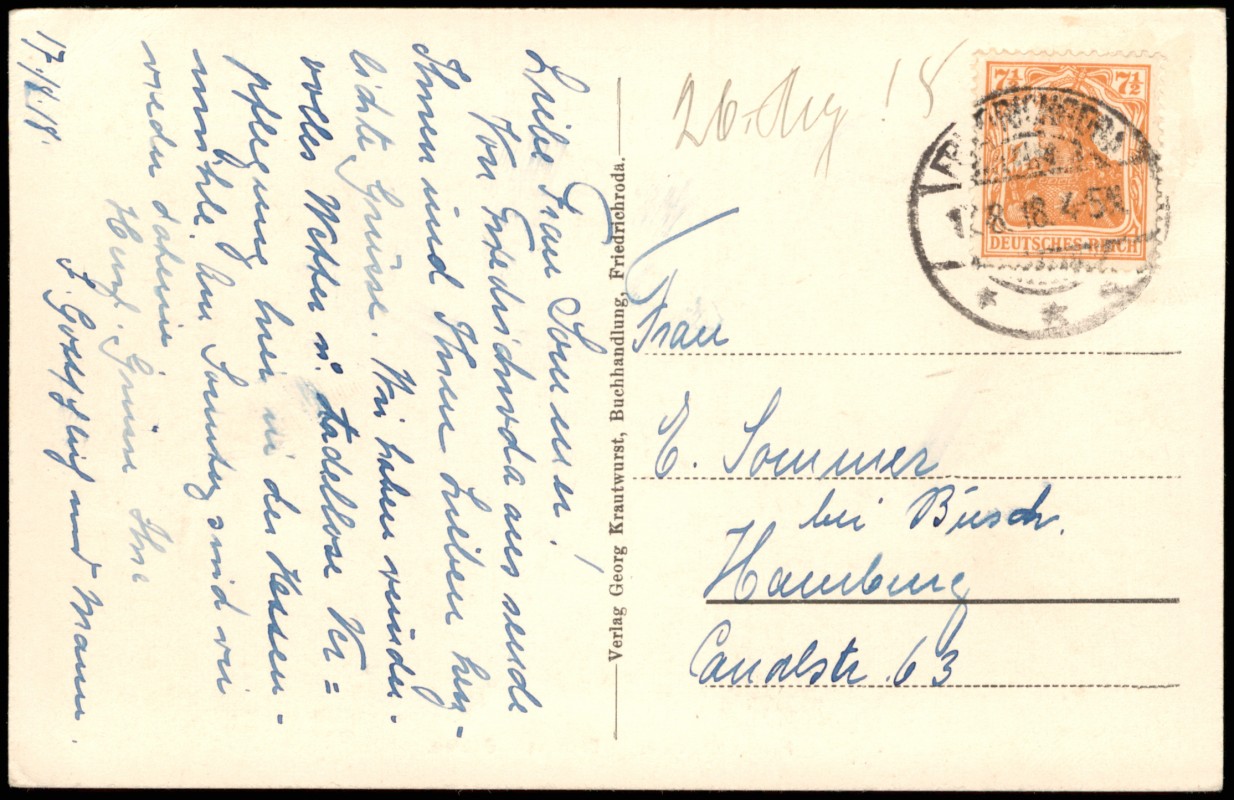 17.8.18.
Liebe Frau Sommer!
Von Friedrichroda aus sende
Ihnen und Ihren Lieben herz-
lichste Grüsse. Wir haben wunder-
volles Wetter u. tadellose Ver=
pflegung hier in der Hessen-
mühle. Am Sonntag sind wir
wieder daheim
Herzl. Grüsse Ihre
F. und Mann.
Verlag Georg Krautwurst, Buchhandlung, Friedrichroda.
26. Aug 18
7½ 7½
DEUTSCHES REICH
FRIEDRICHRODA
17.8.18.4-5N
Frau
E. Sommer
bei Büsch.
Hamburg
Canalstr. 63